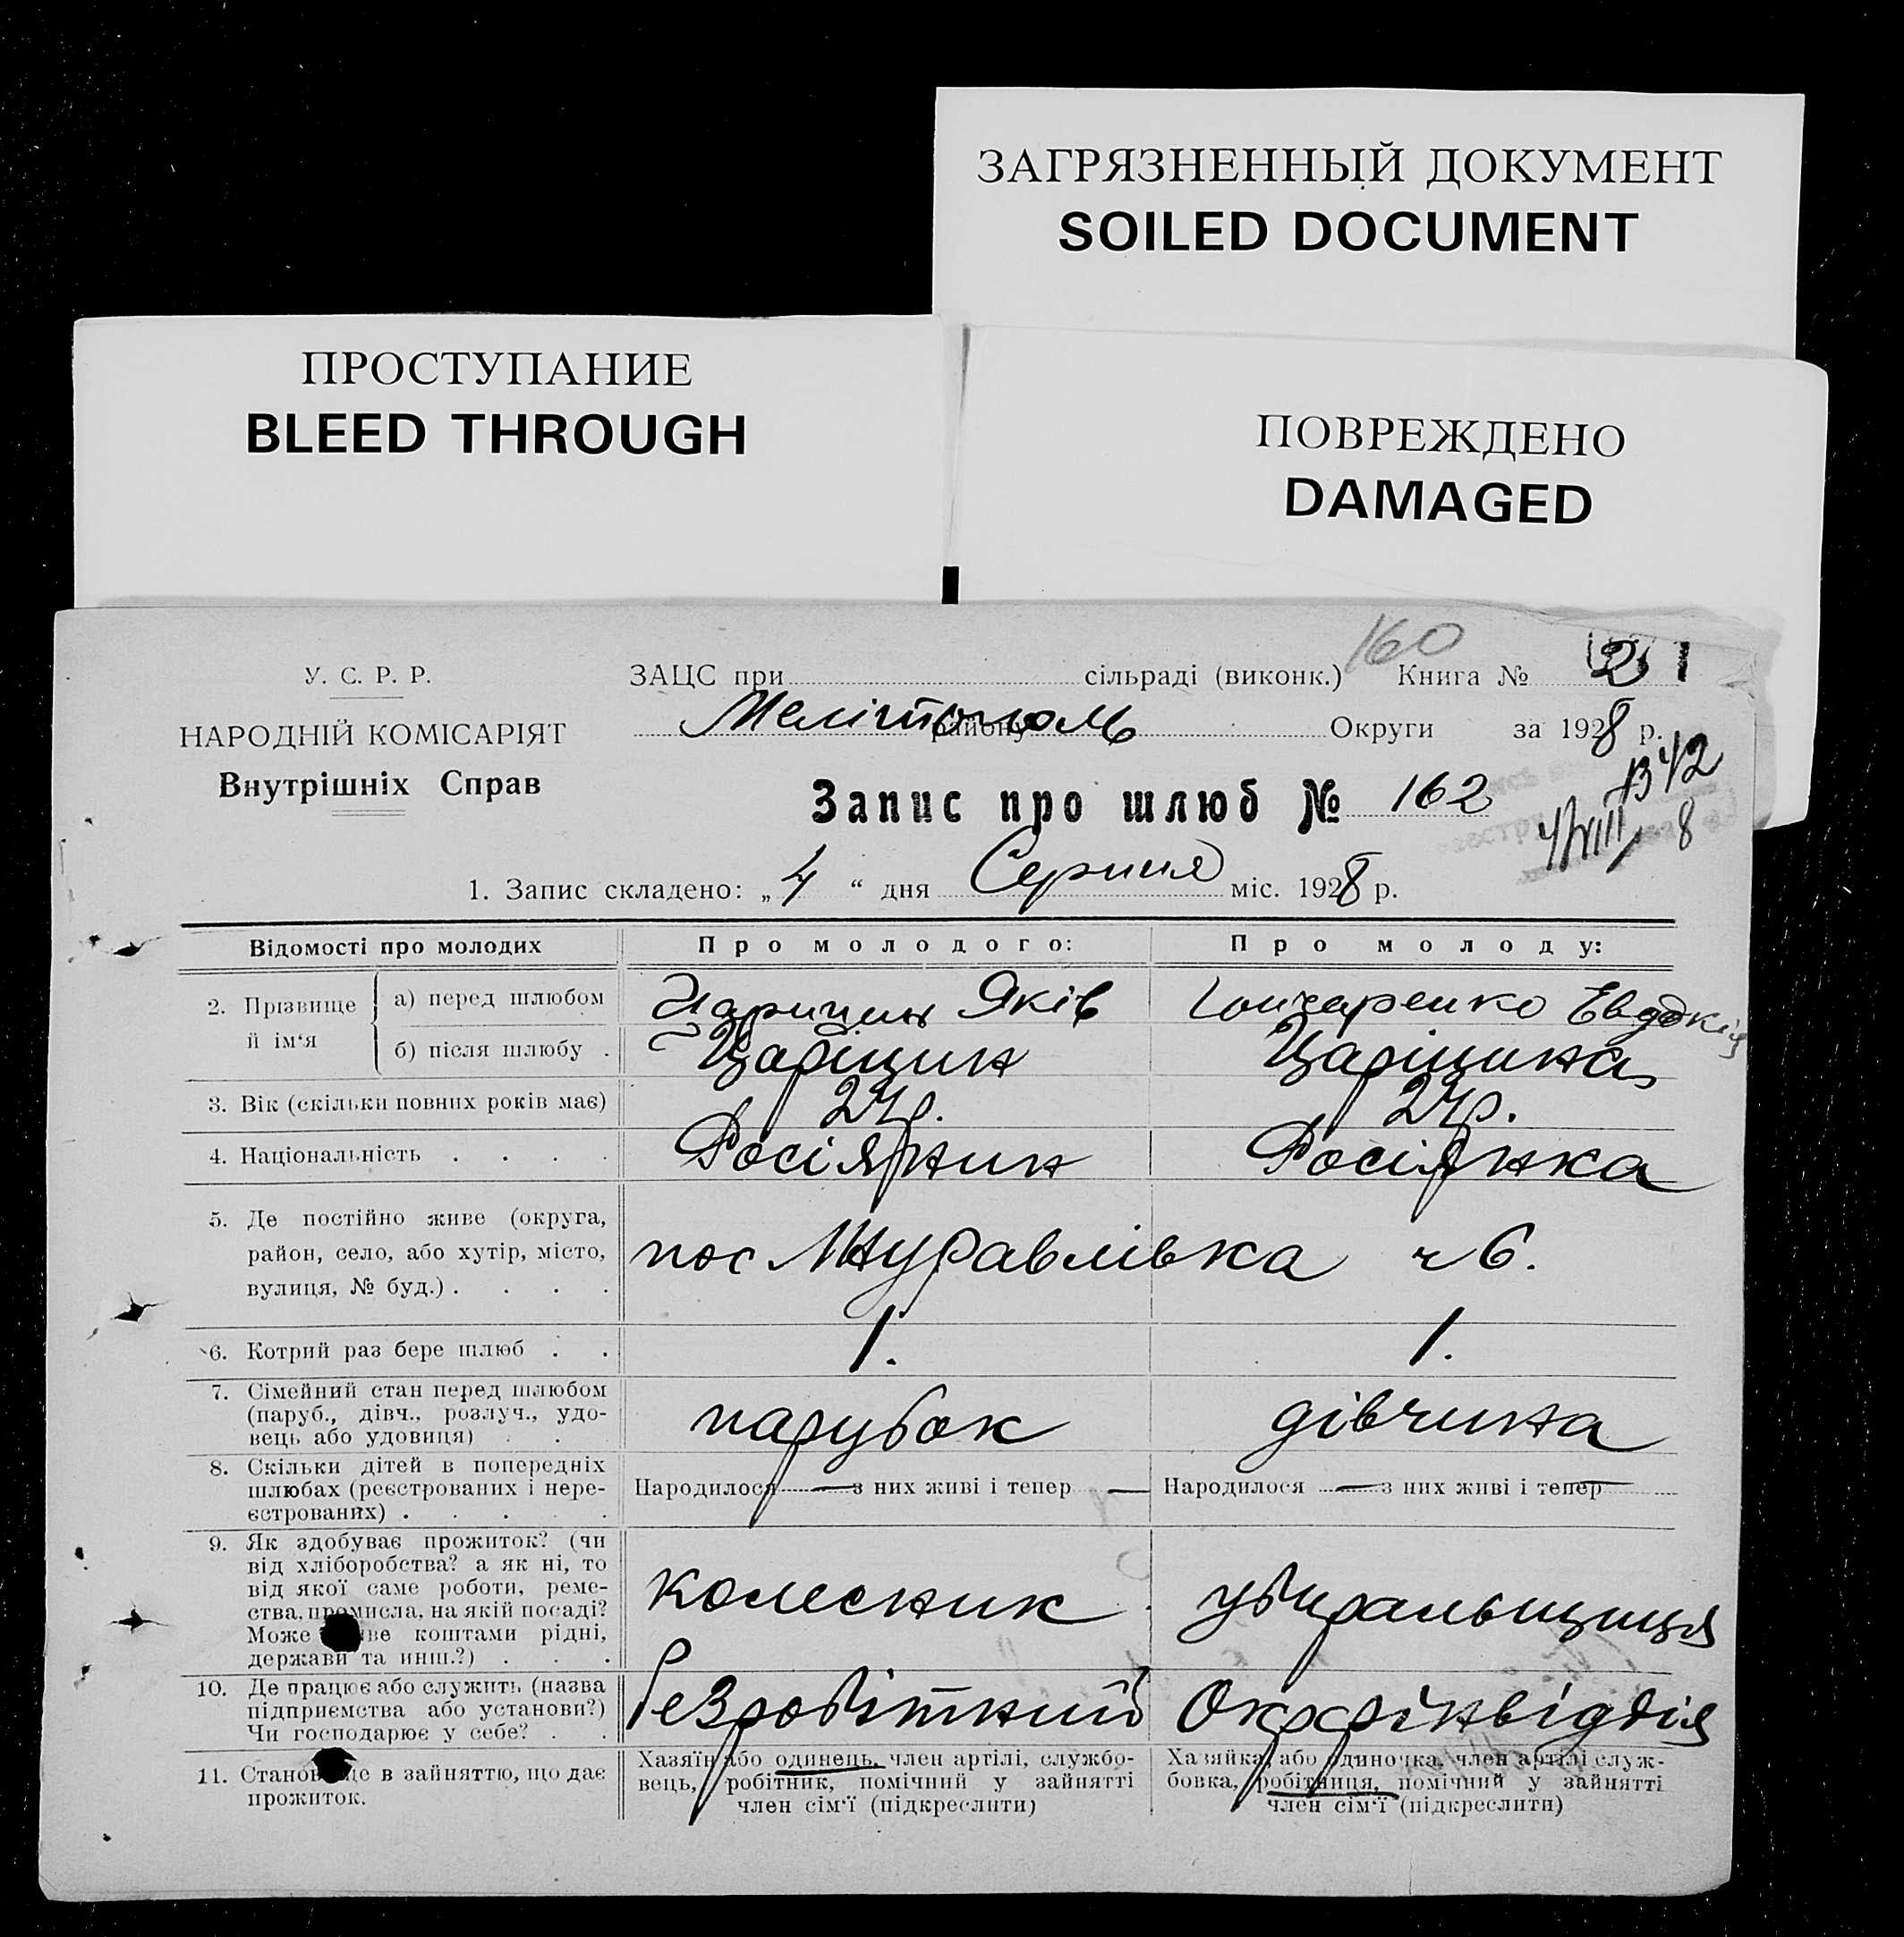 ЗАГРЯЗНЕННЫЙ ДОКУМЕНТ
SOILED DOCUMENT
ПРОСТУПАНИЕ
BLEED THROUGH
ПОВРЕЖДЕНО
DAMAGED
160
У. С. Р. Р.
НАРОДНІЙ КОМІСАРІЯТ
Внутрішніх Справ
ЗАЦС при сільраді (виконк.) Книга № 2
Мелітополь району Округи за 1928 р.
Запис про шлюб № 162
4/VIII 8
1. Запис складено: „4“ дня Серпня міс. 1928 р.
Відомості про молодих Про молодого: Про молоду:
2. Прізвище й ім‘я
а) перед шлюбом Яків Гончаренко Евдокія
б) після шлюбу . Царіцин Царіцина
3. Вік (скільки повних років має) 24р. 24р.
4. Національність . . . . Росіянин Росіянка
5. Де постійно живе (округа,
район, село, або хутір, місто,
вулиця, № буд.) . . . .
пос Журавлівка ч 6.
6. Котрий раз бере шлюб . . 1. 1.
7. Сімейний стан перед шлюбом
(паруб., дівч., розлуч., удо-
вець або удовиця) . .
парубок дівчина
8. Скільки дітей в попередніх
шлюбах (реєстрованих і нере-
єстрованих) . . . . .
Народилося — з них живі і тепер — Народилося — з них живі і тепер —
9. Як здобуває прожиток? (чи
від хліборобства? а як ні, то
від якої саме роботи, реме-
ства, промисла, на якій посаді?
Може живе коштами рідні,
держави та инш.?) . . .
колесник убиральщиця
10. Де працює або служить (назва
підприємства або установи?)
Чи господарює у себе? . .
безробітний Окрфінвідділ
11. Становище в зайняттю, що дає
прожиток.
Хазяїн або одинець, член артілі, службо-
вець, робітник, помічний у зайнятті
член сім‘ї (підкреслити)
Хазяйка, або одиночка, член артілі служ-
бовка, робітниця, помічний у зайнятті
член сім‘ї (підкреслити)